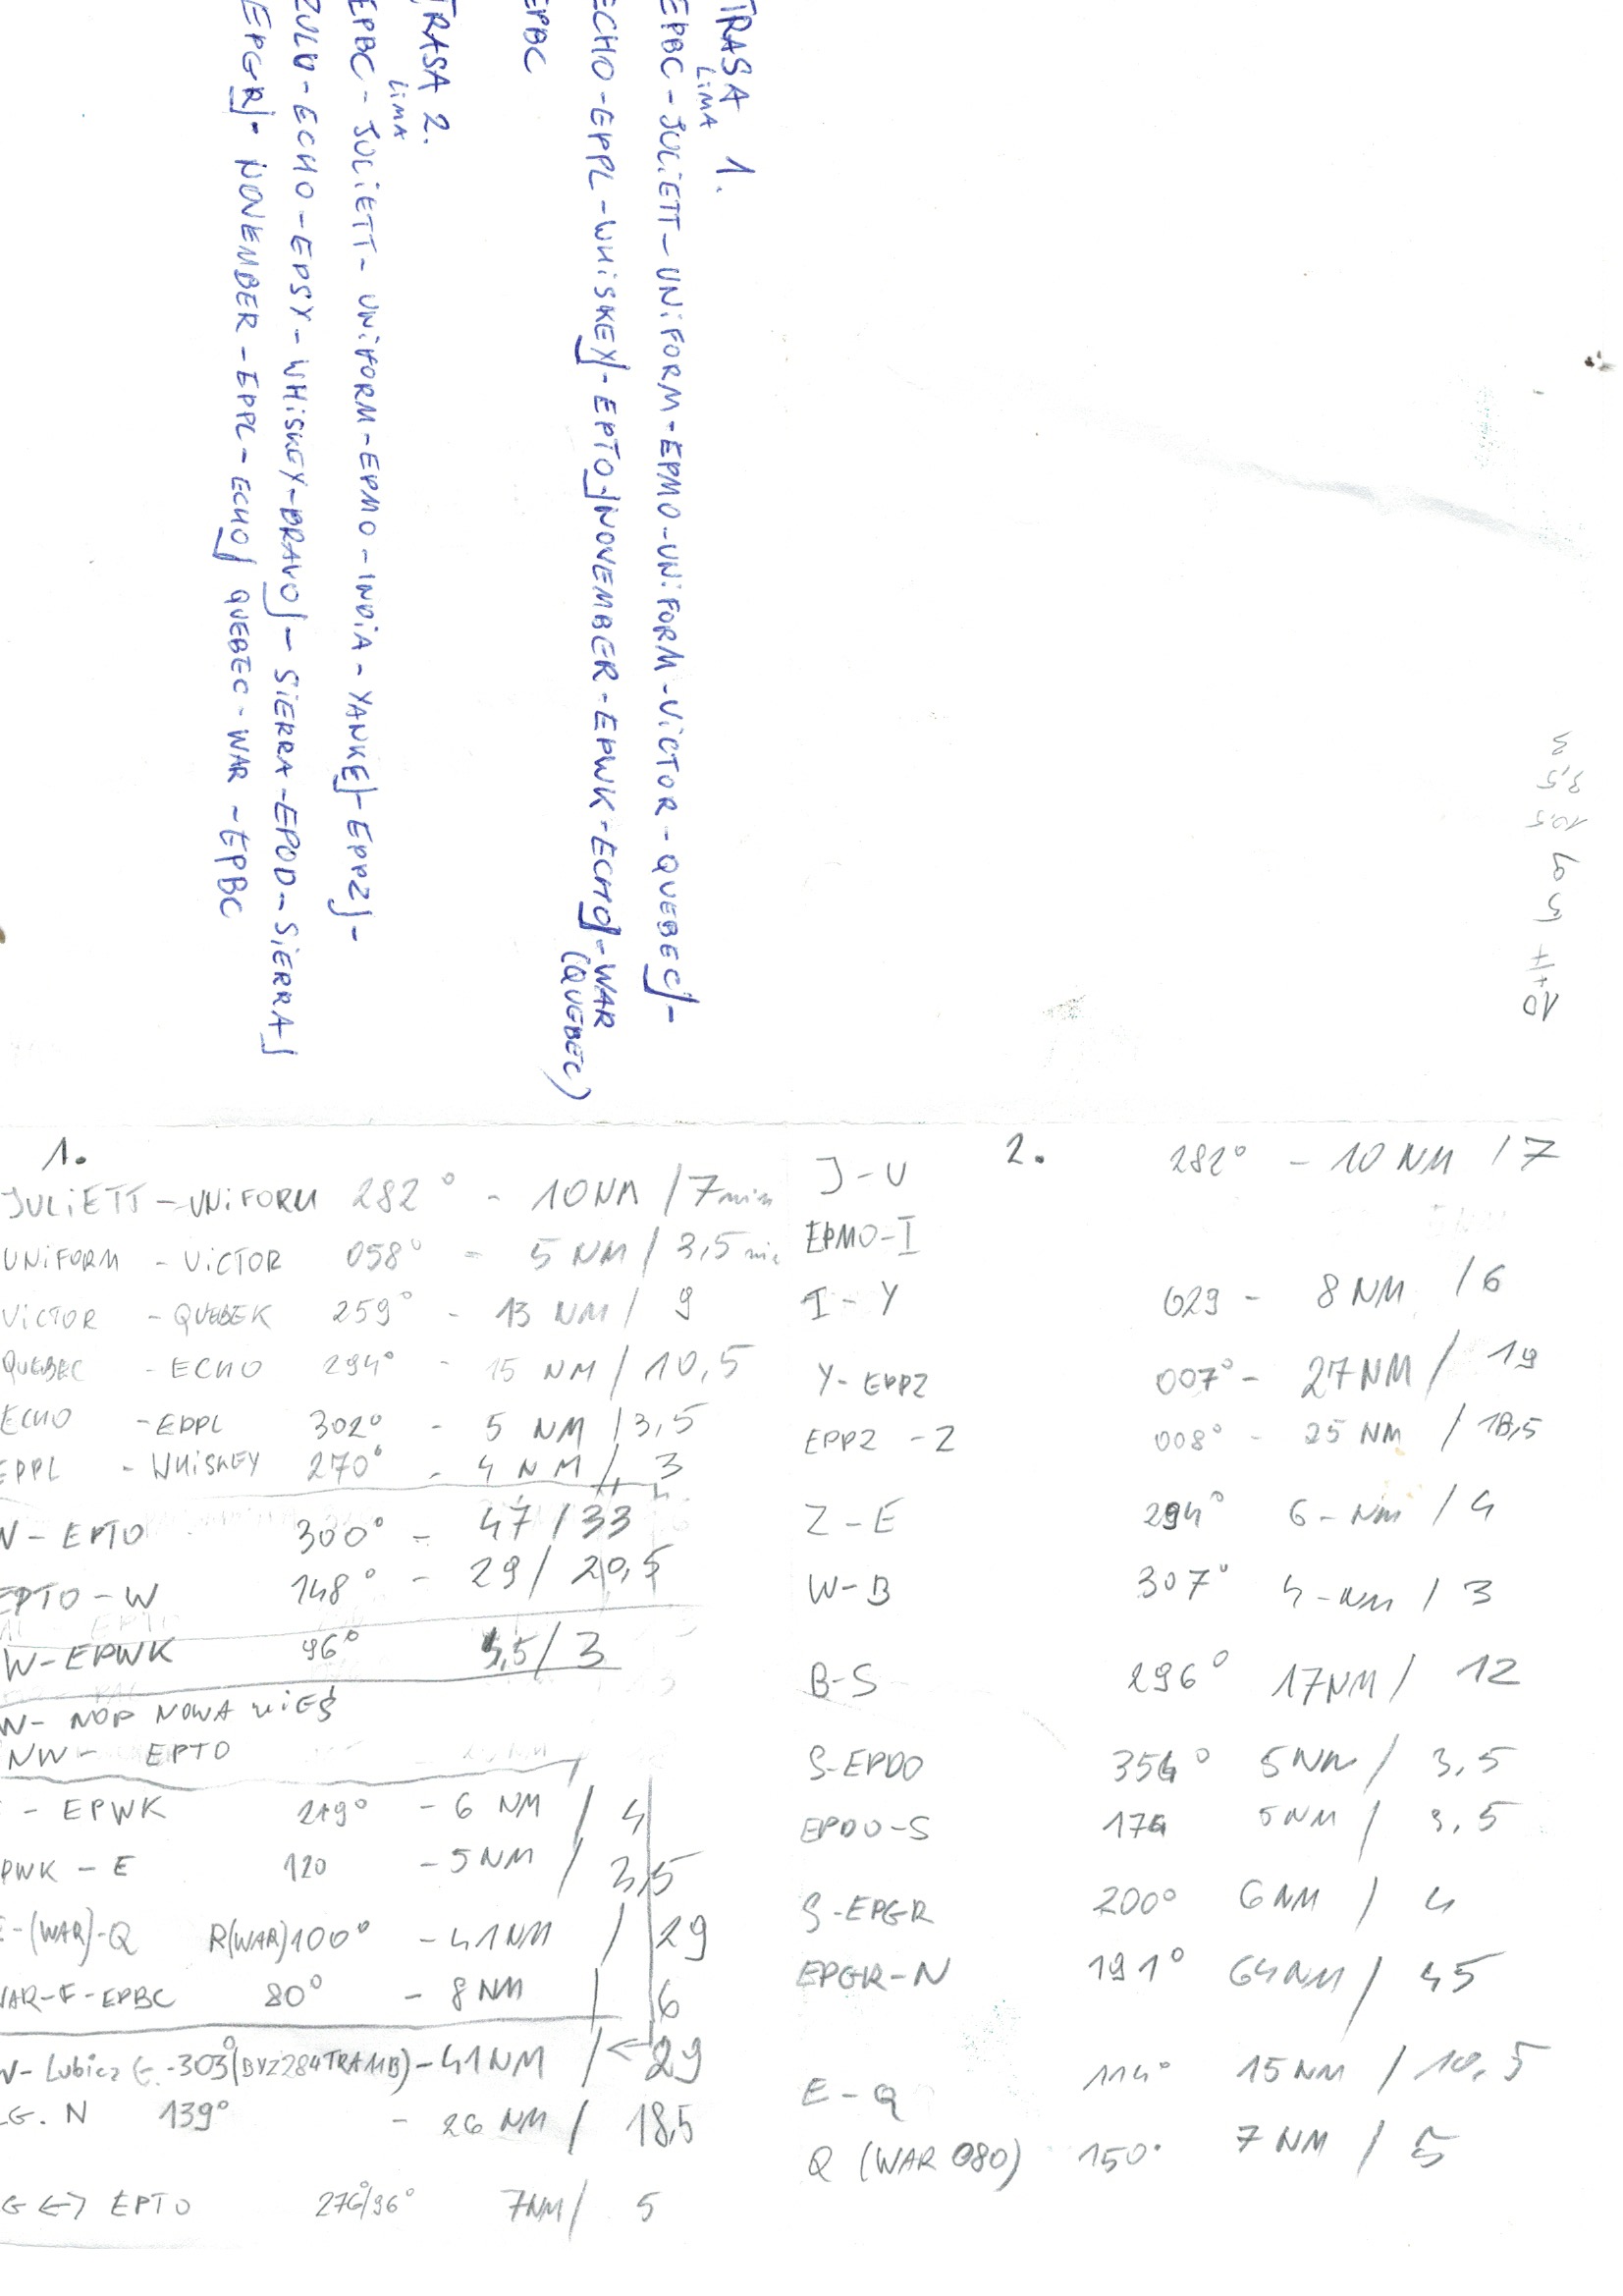 TRASA 1.
LIMA
EPBC - JULIETT - UNIFORM - EPMO - UNIFORM - VICTOR - QUEBEC -
ECHO - EPPL - WHISKEY - EPTO - NOVEMBER - EPWK - ECHO - WAR
(QUEBEC)
EPBC
TRASA 2.
LIMA
EPBC - JULIETT - UNIFORM - EPMO - INDIA - YANKE - EPPZ -
ZULU - ECHO - EPSY - WHISKEY - BRAVO - SIERRA - EPOD - SIERRA
EPGR - NOVEMBER - EPPL - ECHO QUEBEC - WAR - EPBC
3,5
10,5
10
1.
JULIETT - UNIFORM 282° - 10 NM / 7 min
UNIFORM - VICTOR 058° - 5 NM / 3,5 min
VICTOR - QUEBEK 259° - 13 NM / 9
QUEBEC - ECHO 294° - 15 NM / 10,5
ECHO - EPPL 302° - 5 NM / 3,5
EPPL - WHISKEY 270° - 4 NM / 3
W - EPTO 300° - 47 / 33
EPTO - W 148° - 29 / 20,5
W - EPWK 96° 4,5 / 3
W - NDP NOWA WIEŚ
NW - EPTO
- EPWK 219° - 6 NM / 4
PWK - E 120 - 5 NM / 3,5
E - (WAR) - Q R(WAR) 100° - 41 NM / 29
WAR - F - EPBC 80° - 8 NM / 6
W - Lubicz G. - 303° (BYZ284TRA11B) - 41 NM / 29
LG. N 139° - 26 NM / 18,5
G <-> EPTO 276°/96° 7 NM / 5
2.
J - U 282° - 10 NM / 7
EPMO - I
I - Y 029 - 8 NM / 6
Y - EPPZ 007° - 27 NM / 19
EPPZ - Z 008° - 25 NM / 18,5
Z - E 294° 6 - NM / 4
W - B 307° 4 - NM / 3
B - S 296° 17 NM / 12
S - EPDO 354° 5 NM / 3,5
EPDO - S 174 5 NM / 3,5
S - EPGR 200° 6 NM / 4
EPGR - N 191° 64 NM / 45
E - Q 114° 15 NM / 10,5
Q (WAR 080) 150° 7 NM / 5